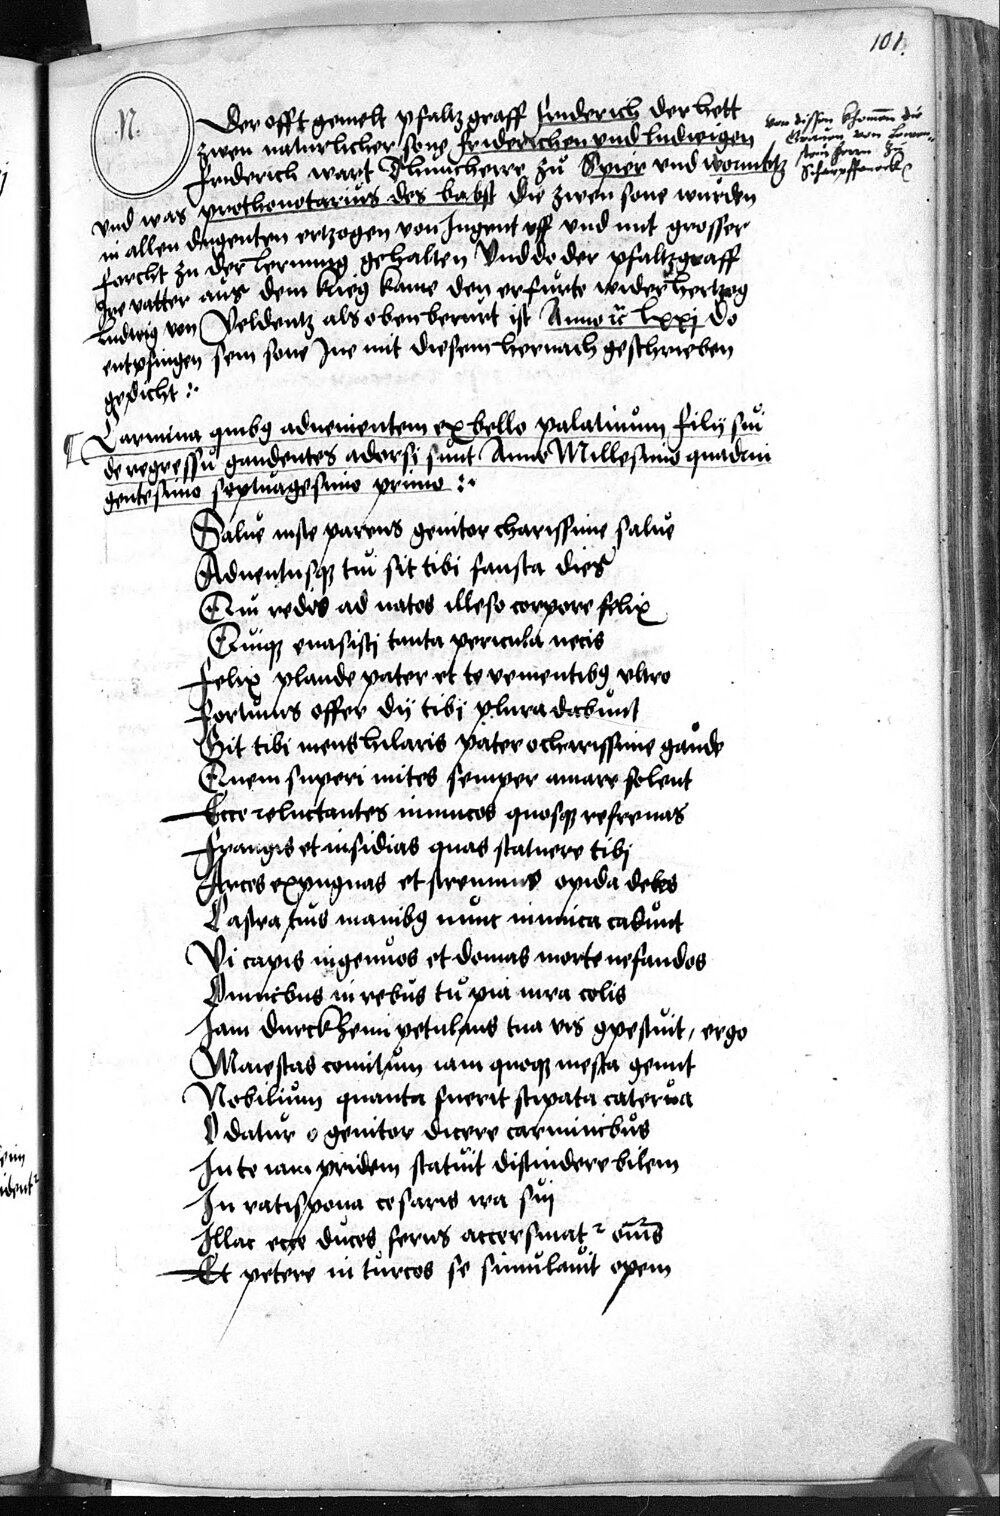 101.
N.
Der offt gemelt pfaltzgraff friderich der hett
zwen naturlicher sone friderichen und ludwigen
friderich wart Thumherre zu Spier und wormbtz
von dissen khomen die
Grauen von Lewen-
stein herrn zu
Scharpffeneck
vnd was prothonotarius des babst die zwen sone wurden
in allen dugenten ertzogen von Jugent vff vnd mit grosser
forcht zu der lernung gehalten Vnd do der pfaltzgraff
Ire vatter aus dem krieg kame den er furte wider hertzog
ludwig von Veldentz als oben berurt ist Anno &c lxxj do
entpfingen sein sone Jne mit diesem hernach geschrieben
gedicht :·
Carmina quibus aduenientem ex bello palatinum filij sui
de regressu gaudentes adorsi sunt Anno Millesimo quadrin
gentesimo septuagesimo primo :·
Salue iuste parens genitor charissime salue
Aduentusque tui sit tibi fausta dies
Qui redis ad natos illeso corpore felix
Quique euasisti tanta pericula necis
Felix plaude pater et te vementibus vltro
Fortunis offer dij tibi plura dabunt
Sit tibi mens hilaris pater o cherrissime gaude
Quem superi mites semper amare solent
Ecce reluctantes inimicos quosque refrenas
Frangis et insidias quas statuere tibi
Arces expugnas et strennuus opida deles
Castra tuis manibus nunc inimica cadunt
Vi capis ingenuos et domas morte nefandos
Omnibus in rebus tu pia iura colis
Iam durckheim petulans tua vis compescuit, ergo
Maiestas comitum iam quoque mesta gemit
Nobilium quanta fuerit stipata caterua
datur o genitor dicere carminibus
In te iam pridem statuit distindere bilem
In ratispona cesaris ira sui
Illac ecce duces ferus accersinatur omnes
Et petere in turcos se simulauit opem